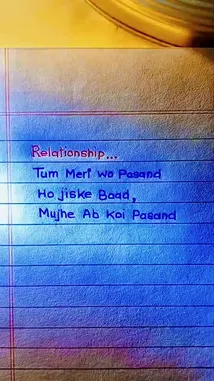 Relationship...
Tum Meri wo Pasand
Ho jiske Baad,
Mujhe Ab Koi Pasand